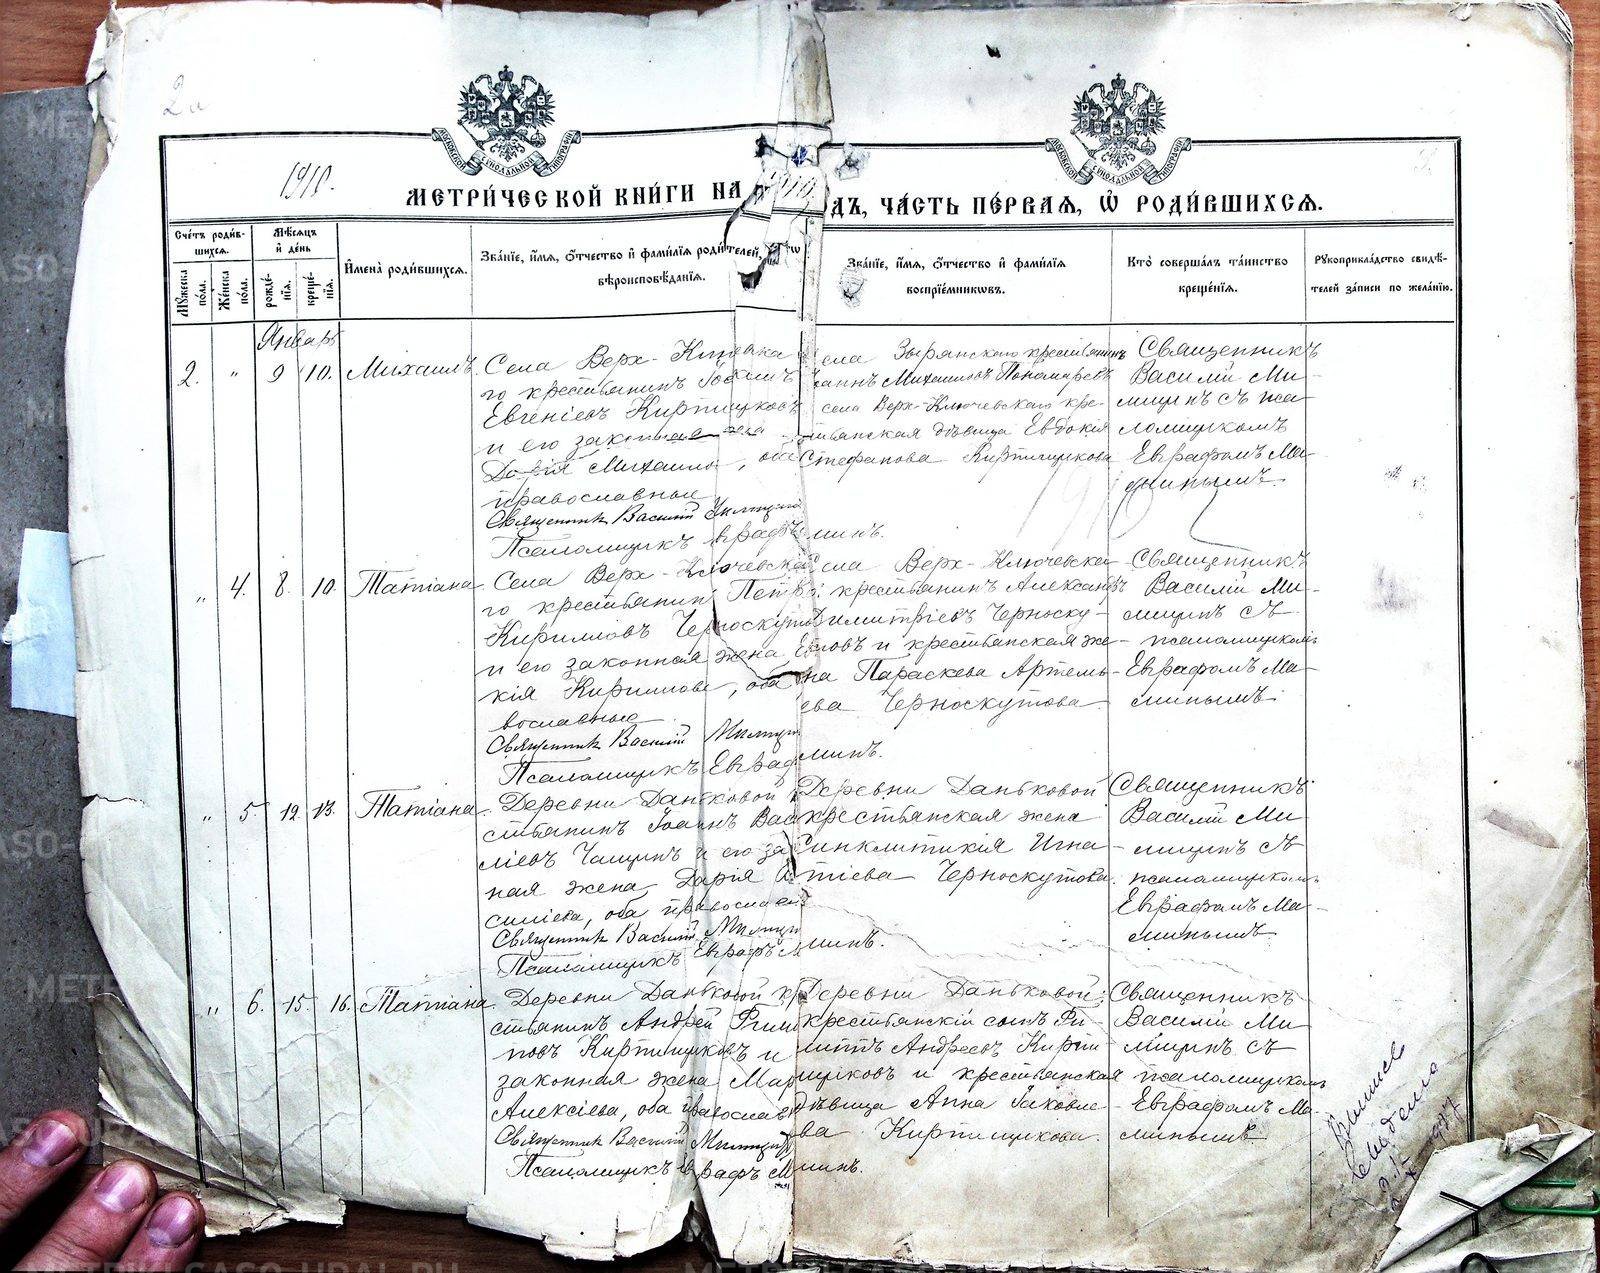 2а
МОСКОВСКОЙ СѴНОДАЛЬНОЙ ТИПОГРАФІИ
МОСКОВСКОЙ СѴНОДАЛЬНОЙ ТИПОГРАФІИ
1918.
МЕТРИ́ЧЕСКОЙ КНИ́ГИ НА ДЪ, ЧА́СТЬ ПЕ́РВАЯ, Ѡ РОДИ́ВШИХСЯ.
Сче́тъ роди́в-
шихся.
Му́жеска по́ла.
Же́нска по́ла.
Мѣ́сяцъ и де́нь
рожде́-нія.
креще́-нія.
Имена̀ роди́вшихся.
Зва́ніе, и́мя, о́тчество и фами́лія роди́телей,
вѣроисповѣ́данія.
Зва́ніе, и́мя, о́тчество и фами́лія
воспріе́мниковъ.
Кто̀ соверша́лъ та́инство
креще́нія.
Рукоприкла́дство свидѣ́-
телей за́писи по жела́нію.
Январь
2. " 9 10. Михаилъ
Села Верх-Ключевска
го крестьянинъ Іоаннъ
Евгеніевъ Кирпищиковъ
и его законная жена
Дарія Михаилова, оба
православные
Священник Василій Милицин
Псаломщикъ Еврафъ Маминъ.
села Зырянскаго крестьянинъ
Михаиловъ Пономаревъ
села Верх-Ключевскаго кре-
стьянская дѣвица Евдокія
Стефанова Кирпищикова
Священникъ
Василій Ми-
лицинъ съ пса
ломщикомъ
Еврафомъ Ма-
минымъ
" 4. 8. 10. Татіана
Села Верх-Ключевска
го крестьянин Петръ
Кирилловъ Черноскутовъ
и его законная жена Ев
кія Кириллова, оба
вославные
Священник Василій Милицин
Псаломщикъ Еврафъ Маминъ.
Села Верх-Ключевска
го крестьянинъ Александръ
Димитріевъ Черноску-
товъ и крестьянская же-
на Параскева Артемь-
ева Черноскутова
Священникъ
Василій Ми-
лицинъ съ
псаломщикомъ
Еврафомъ Ма-
минымъ
" 5. 12 13. Татіана
Деревни Даньковой кре
стьянинъ Іоаннъ Васи
ліевъ Чащинъ и его за
ная жена Дарія
силіева, оба православн
Священник Василій Милицин
Псаломщикъ Еврафъ Маминъ.
Деревни Даньковой
крестьянская жена
Синклитикія Игна-
тіева Черноскутова.
Священникъ
Василій Ми-
лицинъ съ
псаломщикомъ
Еврафомъ Ма-
минымъ
" 6. 15. 16. Татіана
Деревни Даньковой кре
стьянинъ Андрей Филип
повъ Кирпищиковъ и
законная жена Марія
Алексіева, оба православн
Священник Василій Милицин
Псаломщикъ Еврафъ Маминъ.
Деревни Даньковой,
крестьянскій сынъ Фи-
липпъ Андреевъ Кирпи
щиковъ и крестьянская
дѣвица Анна Іаковле-
ва Кирпищикова.
Священникъ
Василій Ми-
лицинъ съ
псаломщикомъ
Еврафомъ Ма-
минымъ